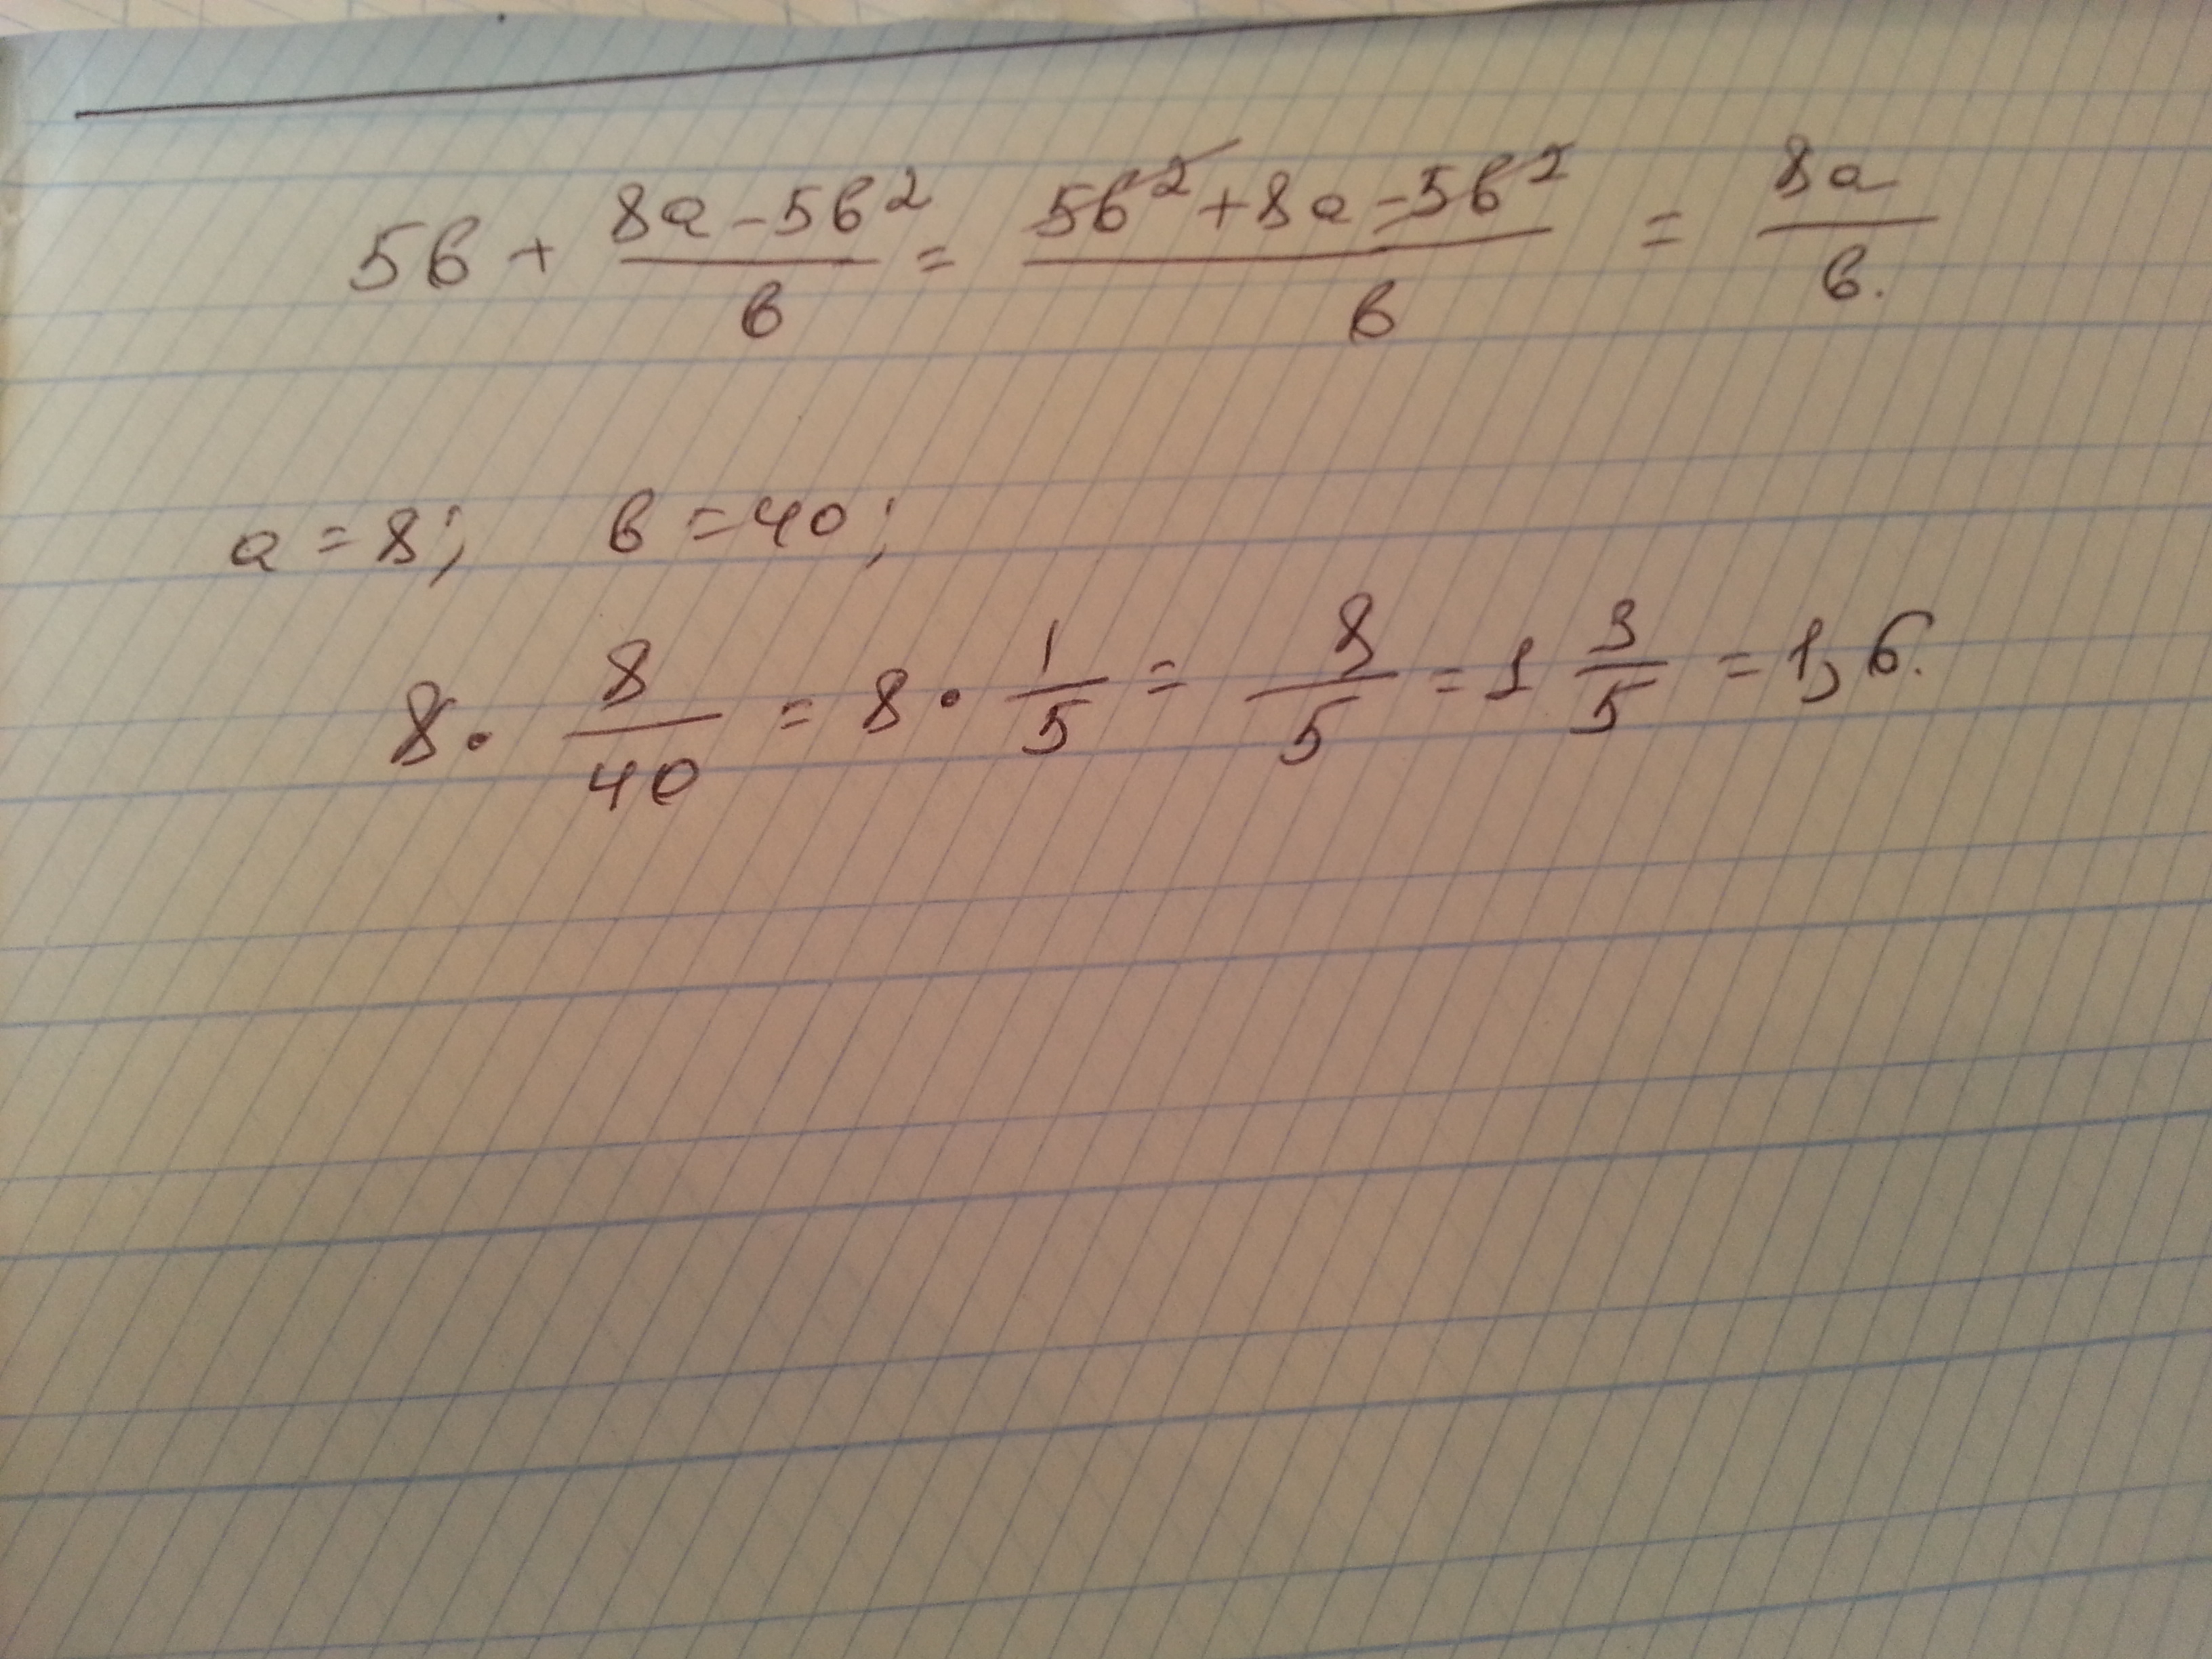 5в + (8а - 5в²)/в = (5в² + 8а - 5в²)/в = 8а/в.
а = 8; в = 40;
8 · 8/40 = 8 · 1/5 = 8/5 = 1 3/5 = 1,6.